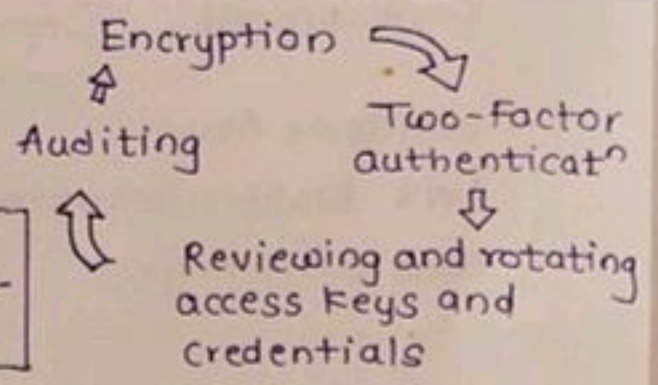 Encryption
Two-factor
authenticatⁿ
Auditing
Reviewing and rotating
access keys and
credentials